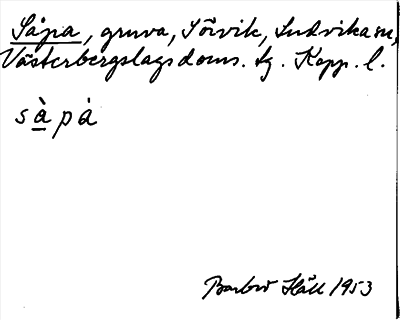 Såpa, gruva, Sörvik, Ludvika sn,
Västerbergslags doms. tg. Kopp. l.
sàpà
Barbro Häll 1953